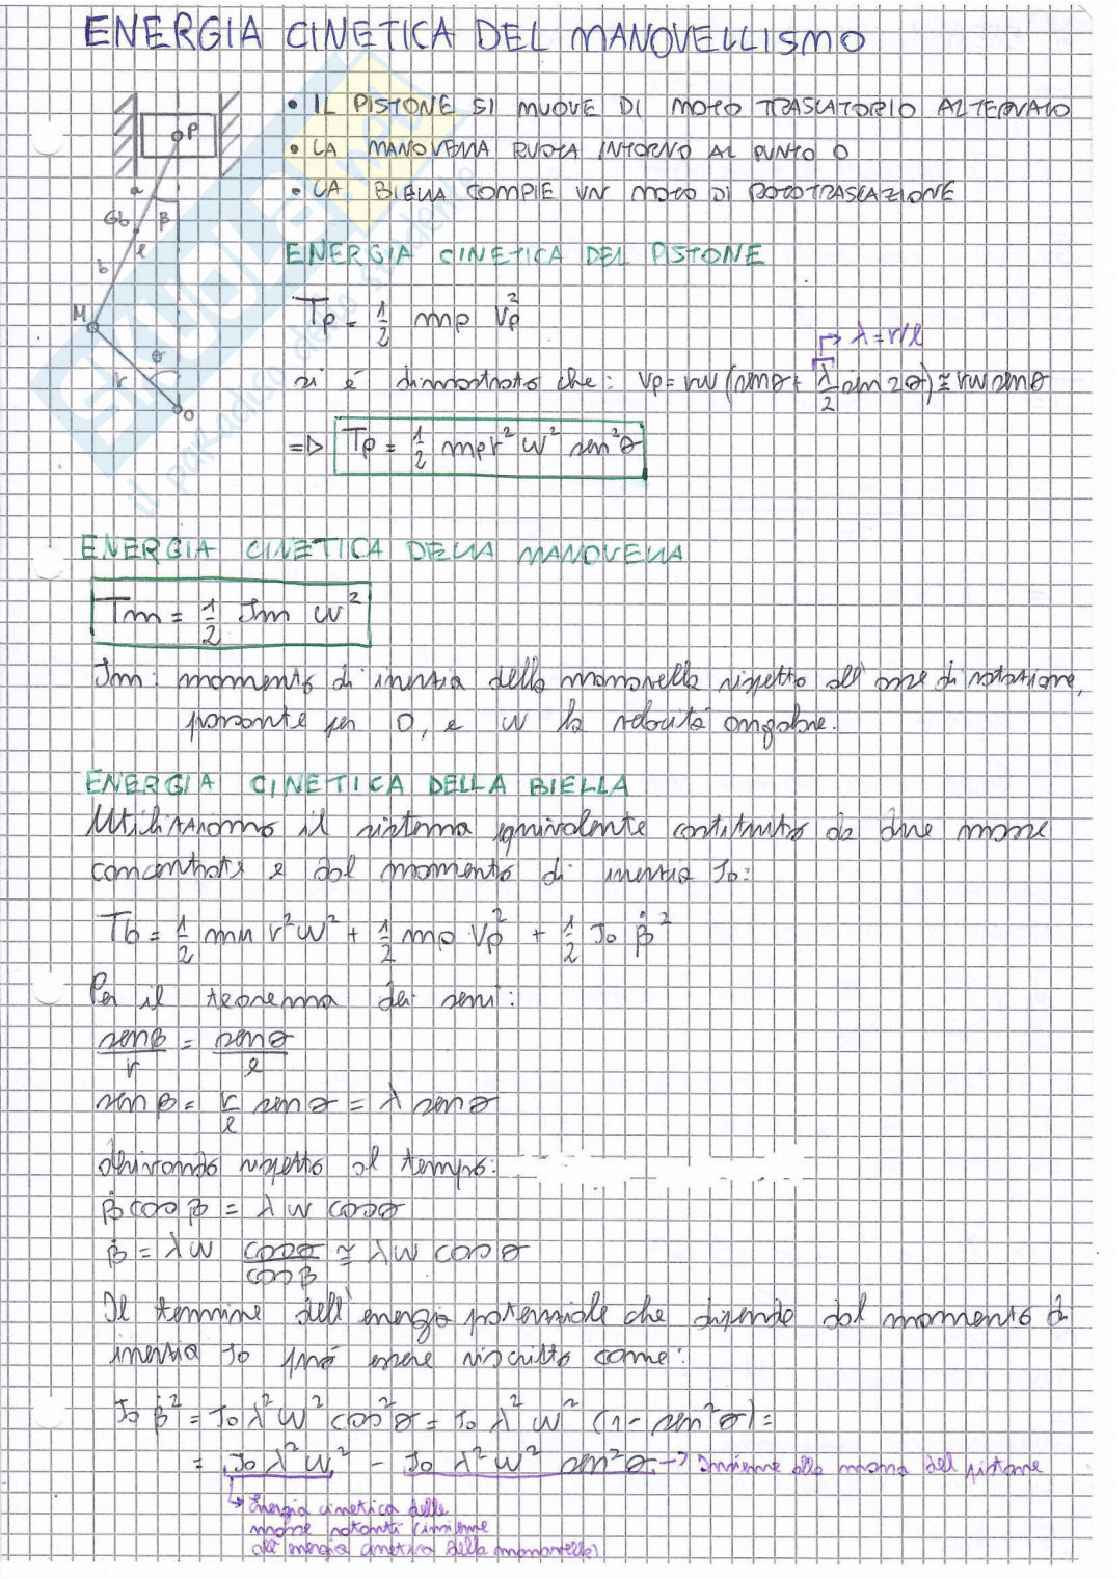 ENERGIA CINETICA DEL MANOVELLISMO
• IL PISTONE SI MUOVE DI MOTO TRASLATORIO ALTERNATO
• LA MANOVELLA RUOTA INTORNO AL PUNTO O
• LA BIELLA COMPIE UN MOTO DI ROTOTRASLAZIONE
P
a
Gb β
l
b
M
θ
r
O
ENERGIA CINETICA DEL PISTONE
Tp = 1/2 mp Vp²
→ λ = r/l
si è dimostrato che: Vp = rω (senθ + λ/2 sin 2θ) ≅ rω senθ
=> Tp = 1/2 mp r² ω² sen²θ
ENERGIA CINETICA DELLA MANOVELLA
Tm = 1/2 Jm ω²
Jm: momento di inerzia della manovella rispetto all'asse di rotazione,
passante per O, e ω la velocità angolare.
ENERGIA CINETICA DELLA BIELLA
Utilizziamo il sistema equivalente costituito da due masse
concentrate e dal momento di inerzia Jo:
Tb = 1/2 mm r²ω² + 1/2 mp Vp² + 1/2 Jo β̇²
Per il teorema dei seni:
senβ/r = senθ/l
sen β = r/l sen θ = λ senθ
derivando rispetto al tempo:
β̇ cos β = λ ω cosθ
β̇ = λω cosθ/cosβ ≅ λω cos θ
Il termine dell'energia potenziale che dipende dal momento di
inerzia Jo può essere riscritto come:
Jo β̇² = Jo λ²ω² cos²θ = Jo λ² ω² (1 - sen²θ) =
= Jo λ²ω² - Jo λ²ω² sen²θ → Insieme alla massa del pistone
↳ Energia cinetica delle
masse rotanti (insieme
all'energia cinetica della manovella)
SKUOLA
il paradiso dello studente